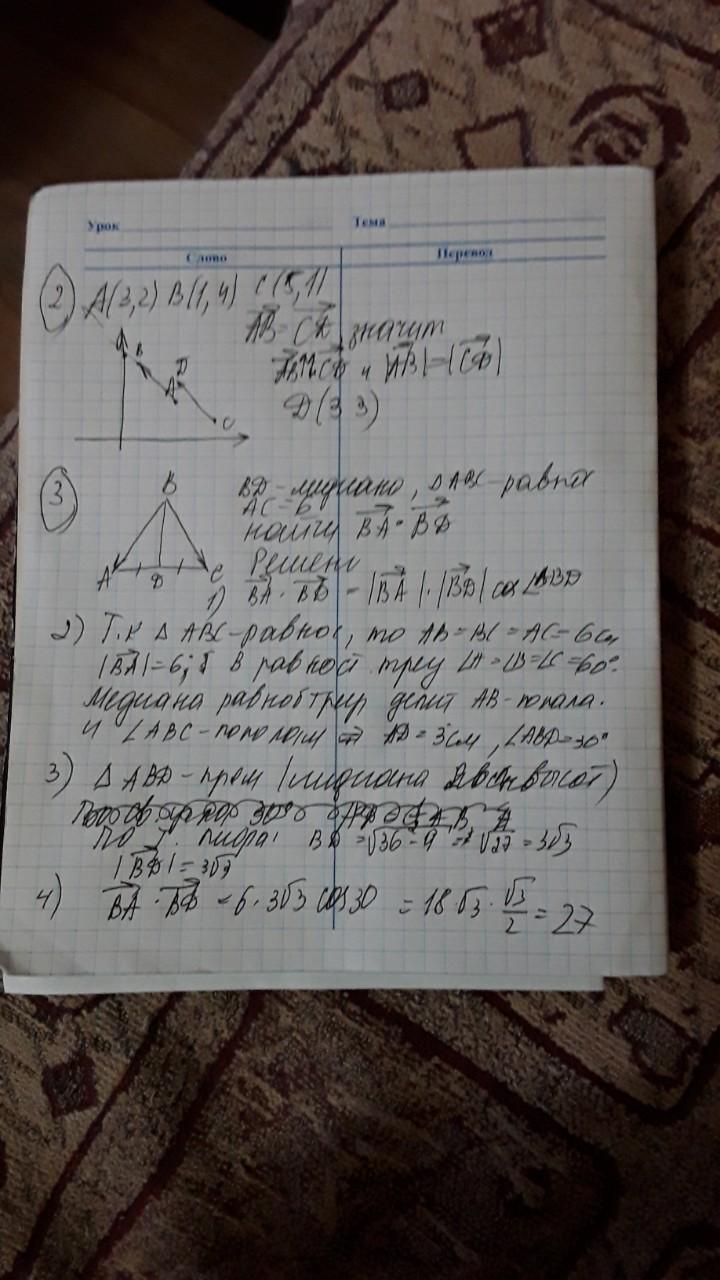 Урок Тема
Слово Перевод
2 A(3,2) B(1,4) C(5,1)
AB = CD, значит
AB↑↑CD и |AB|=|CD|
D(3 3)
B D A C
3 BD-медиана, ΔABC-равн
AC = 6
найти BA · BD
B A D C
Решени
1) BA · BD = |BA|·|BD| cos∠ABD
2) Т.к Δ ABC-равнос, то AB=BC=AC=6см
|BA|=6; В равност треу ∠A=∠B=∠C=60°.
Медиана равност делит попала.
и ∠ABC-пополам ⇒ AD=3см, ∠ABD=30°
3) ΔABD-прям (медиана высот)
По т. BD = √36-9 = √27 = 3√3
|BD| = 3√3
4) BA · BD = 6·3√3 cos30 = 18·√3·√3/2 = 27